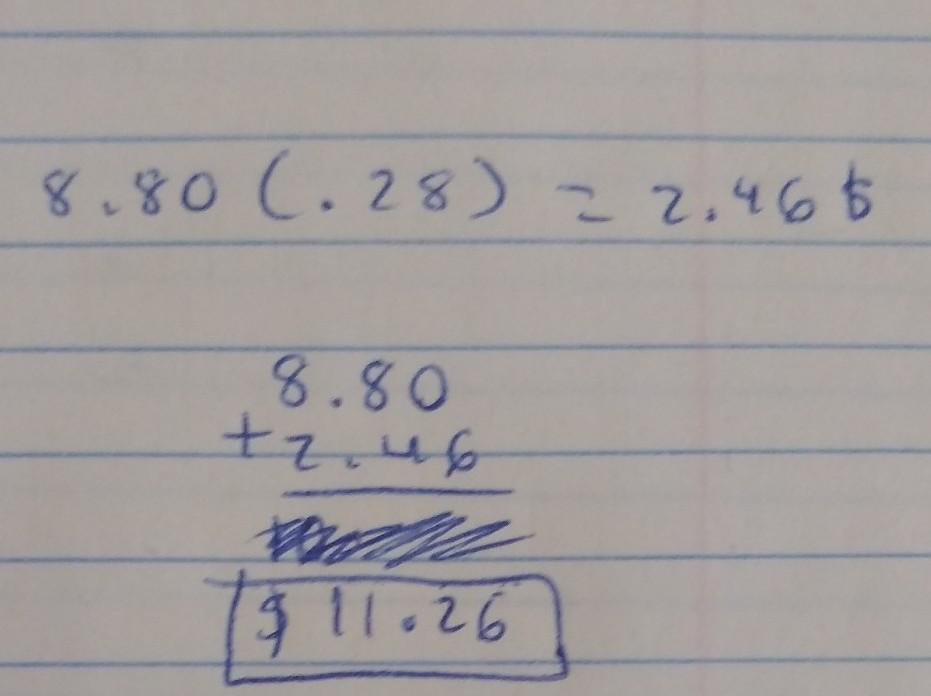 8.80 (.28) = 2.46
8.80
+ 2.46
$ 11.26